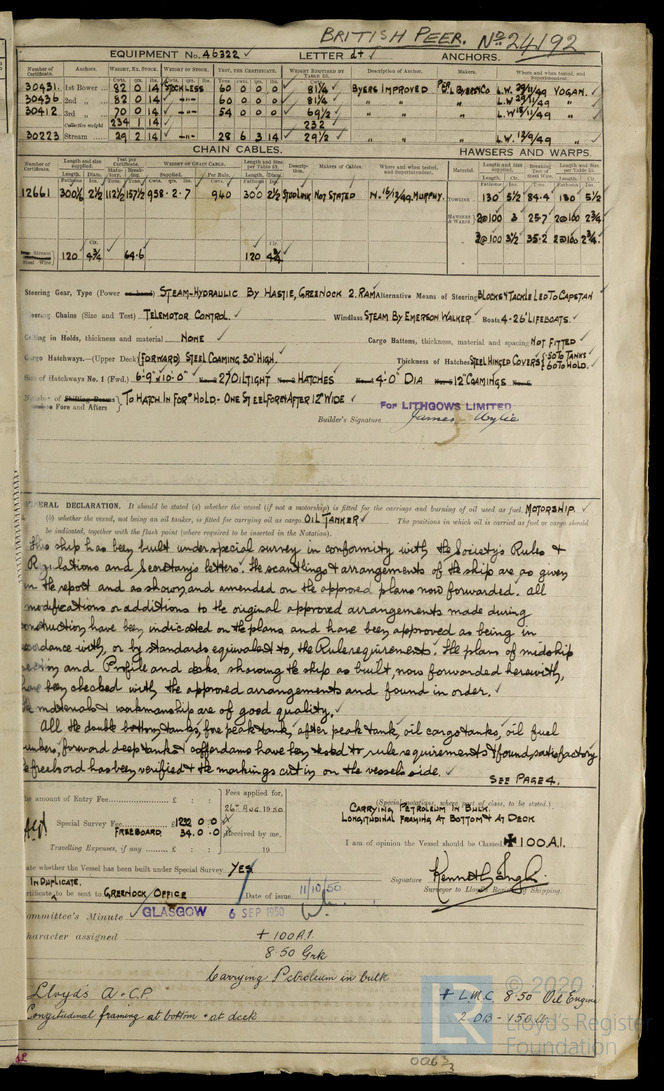 BRITISH PEER. No 24192
EQUIPMENT No. 46322 LETTER d+ ANCHORS.
Number of Certificate. Anchors. Weight, Ex. Stock. Weight of Stock. Test, per Certificate. Weight Required by Table 53. Description of Anchor. Makers. Where and when tested, and Superintendent.
Cwts. qrs. lbs. Cwts. qrs. lbs. Tons. cwts. qrs. lbs. Cwts.
30431. 1st Bower 82 0 14 STOCKLESS 60 0 0 0 81¼ BYERS IMPROVED L. BYERS & Co L.W. 29/11/49 VOGAN.
30436 2nd „ 82 0 14 -"- 60 0 0 0 81¼ " " " L.W 29/11/49 "
30412 3rd „ 70 0 14 -"- 54 0 0 0 69½ " " " L.W 18/11/49 "
Collective weight 234 1 14 232
30223 Stream 29 2 14 -"- 28 6 3 14 29½ " " L.W. 12/9/49 "
CHAIN CABLES. HAWSERS AND WARPS.
Number of Certificate. Length and size supplied. Test per Certificate. Weight of Chain Cable. Length and size per Table 53. Description. Makers of Cables. Where and when tested, and Superintendent. Material. Length and Size supplied. Breaking Test of Steel Wire. Length and Size per Table 53.
12661 300½ 2½ 112½ 157½ 958·2·7 940 300 2½ STUD LINK NOT STATED N. 16/12/49 MURPHY. TOWLINE 130 5½ 84·4 130 5½
HAWSERS & WARPS 2@100 3 25·7 2@100 2¾
3@100 3½ 35·2 2@100 2¾
Stream Steel Wire 120 4¾ 64·6 120 4¾
Steering Gear, Type (Power or hand) STEAM-HYDRAULIC BY HASTIE, GREENOCK 2. RAM Alternative Means of Steering BLOCKS & TACKLE LED TO CAPSTAN
Steering Chains (Size and Test) TELEMOTOR CONTROL. Windlass STEAM BY EMERSON WALKER Boats 4-26' LIFEBOATS.
Ceiling in Holds, thickness and material NONE Cargo Battens, thickness, material and spacing NOT FITTED
Cargo Hatchways.—(Upper Deck) (FORWARD) STEEL COAMING 30" HIGH. Thickness of Hatches STEEL HINGED COVERS ·50 TO TANKS ·60 TO HOLD.
Size of Hatchways No. 1 (Fwd.) 6'-9" x 10'-0" No. 2 27 OILTIGHT No. 3 HATCHES No. 4 4'-0" DIA No. 5 12" COAMINGS No. 6
Number of Shifting Beams and/or Fore and Afters } TO HATCH IN FOR'D HOLD - ONE STEEL FORE & AFTER 12" WIDE
For LITHGOWS LIMITED
Builder's Signature James Wylie
GENERAL DECLARATION. It should be stated (a) whether the vessel (if not a motorship) is fitted for the carriage and burning of oil used as fuel MOTORSHIP.
(b) whether the vessel, not being an oil tanker, is fitted for carrying oil as cargo OIL TANKER The positions in which oil is carried as fuel or cargo should
be indicated, together with the flash point (where required to be inserted in the Notation).
This ship has been built under special survey in conformity with the Society's Rules &
Regulations and Secretary's letters. The scantlings & arrangements of the ship are as given
in the report and as shown and amended on the approved plans now forwarded. All
modifications or additions to the original approved arrangements made during
construction have been indicated on the plans and have been approved as being in
accordance with, or by standards equivalent to, the Rule requirements. The plans of midship
section and Profile and decks, showing the ship as built, now forwarded herewith,
have been checked with the approved arrangements and found in order.
The materials & workmanship are of good quality.
All the double bottom tanks, fore peak tank, after peak tank, oil cargo tanks, oil fuel
bunkers, forward deep tanks & cofferdams have been tested to rule requirements & found satisfactory
The freeboard has been verified & the markings cut in on the vessel's side.
SEE PAGE 4.
The amount of Entry Fee £ : : Fees applied for,
26th AUG. 1950
Special Survey Fee £1232 0 0
FREEBOARD 34. 0. 0 Received by me,
Travelling Expenses, if any £ : : 19
(Special notations, where part of class, to be stated.)
CARRYING PETROLEUM IN BULK.
LONGITUDINAL FRAMING AT BOTTOM & AT DECK
I am of opinion the Vessel should be Classed ✠ 100A1.
State whether the Vessel has been built under Special Survey. YES
Signature
Surveyor to Lloyd's Register of Shipping.
IN DUPLICATE.
Certificate to be sent to GREENOCK OFFICE Date of issue 11/10/50
Committee's Minute GLASGOW 6 SEP 1950
Character assigned + 100A1
8·50 Grk
Carrying Petroleum in bulk
Lloyd's A & C.P. + L.M.C. 8·50 Oil Engine
Longitudinal framing at bottom & at deck 2 DB - 150 lb
© 2020
Lloyd's Register
Foundation